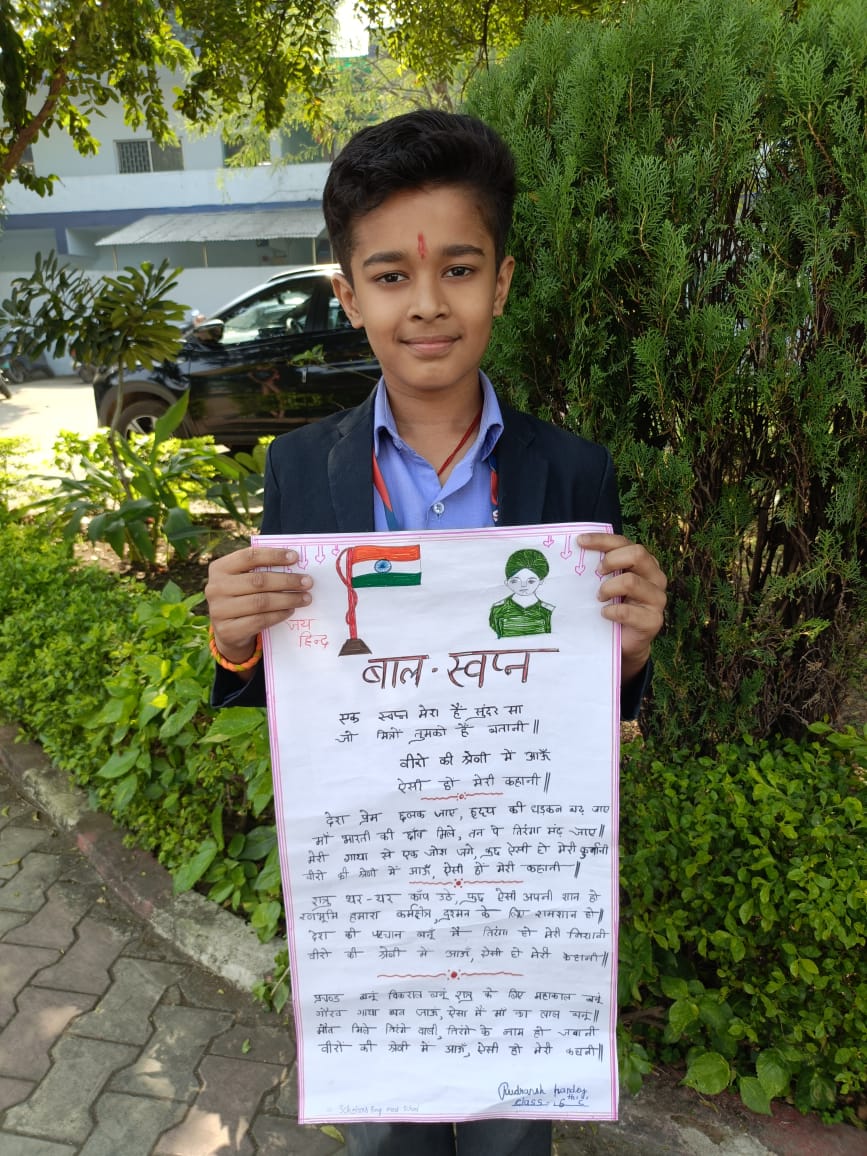 जय
हिन्द
बाल-स्वप्न
एक स्वप्न मेरा हैं सुंदर सा
जो मित्रों तुमको हैं बतानी ॥
वीरो की श्रेणी मे आऊँ
ऐसी हो मेरी कहानी ॥
देश प्रेम छलक जाए, हृदय की धड़कन बढ़ जाए
माँ भारती की छाँव मिले, तन पे तिरंगा मंढ़ जाए ॥
मेरी गाथा से एक जोश जगे, कुछ ऐसी हो मेरी कुर्बानी
वीरो की श्रेणी में आऊँ, ऐसी हो मेरी कहानी ॥
शत्रु थर-थर काँप उठे, कुछ ऐसी अपनी शान हो
रणभूमि हमारा कर्मक्षेत्र, दुश्मन के लिए शमशान हो ॥
देश की पहचान बनूं मैं तिरंगा हो मेरी निशानी
वीरो की श्रेणी मे आऊँ, ऐसी हो मेरी कहानी ॥
प्रचण्ड बनूं विकराल बनूं शत्रु के लिए महाकाल बनूं
गौरव गाथा बन जाऊँ, ऐसा मैं माँ का लाल बनूं ॥
मौत मिले तिरंगे वाली, तिरंगे के नाम हो जवानी
वीरो की श्रेणी मे आऊँ, ऐसी हो मेरी कहानी ॥
Rudransh Pandey
class - 6th C
School